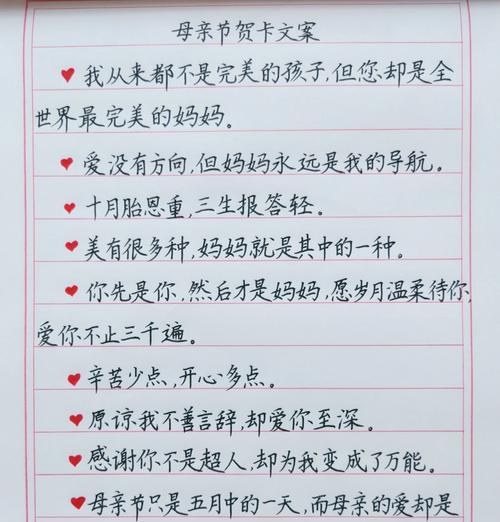 母亲节贺卡文案
我从来都不是完美的孩子,但您却是全
世界最完美的妈妈。
爱没有方向,但妈妈永远是我的导航。
十月胎恩重,三生报答轻。
美有很多种,妈妈就是其中的一种。
你先是你,然后才是妈妈,愿岁月温柔待你,
爱你不止三千遍。
辛苦少点,开心多点。
原谅我不善言辞,却爱你至深。
感谢你不是超人,却为我变成了万能。
母亲节只是五月中的一天,而母亲的爱却是